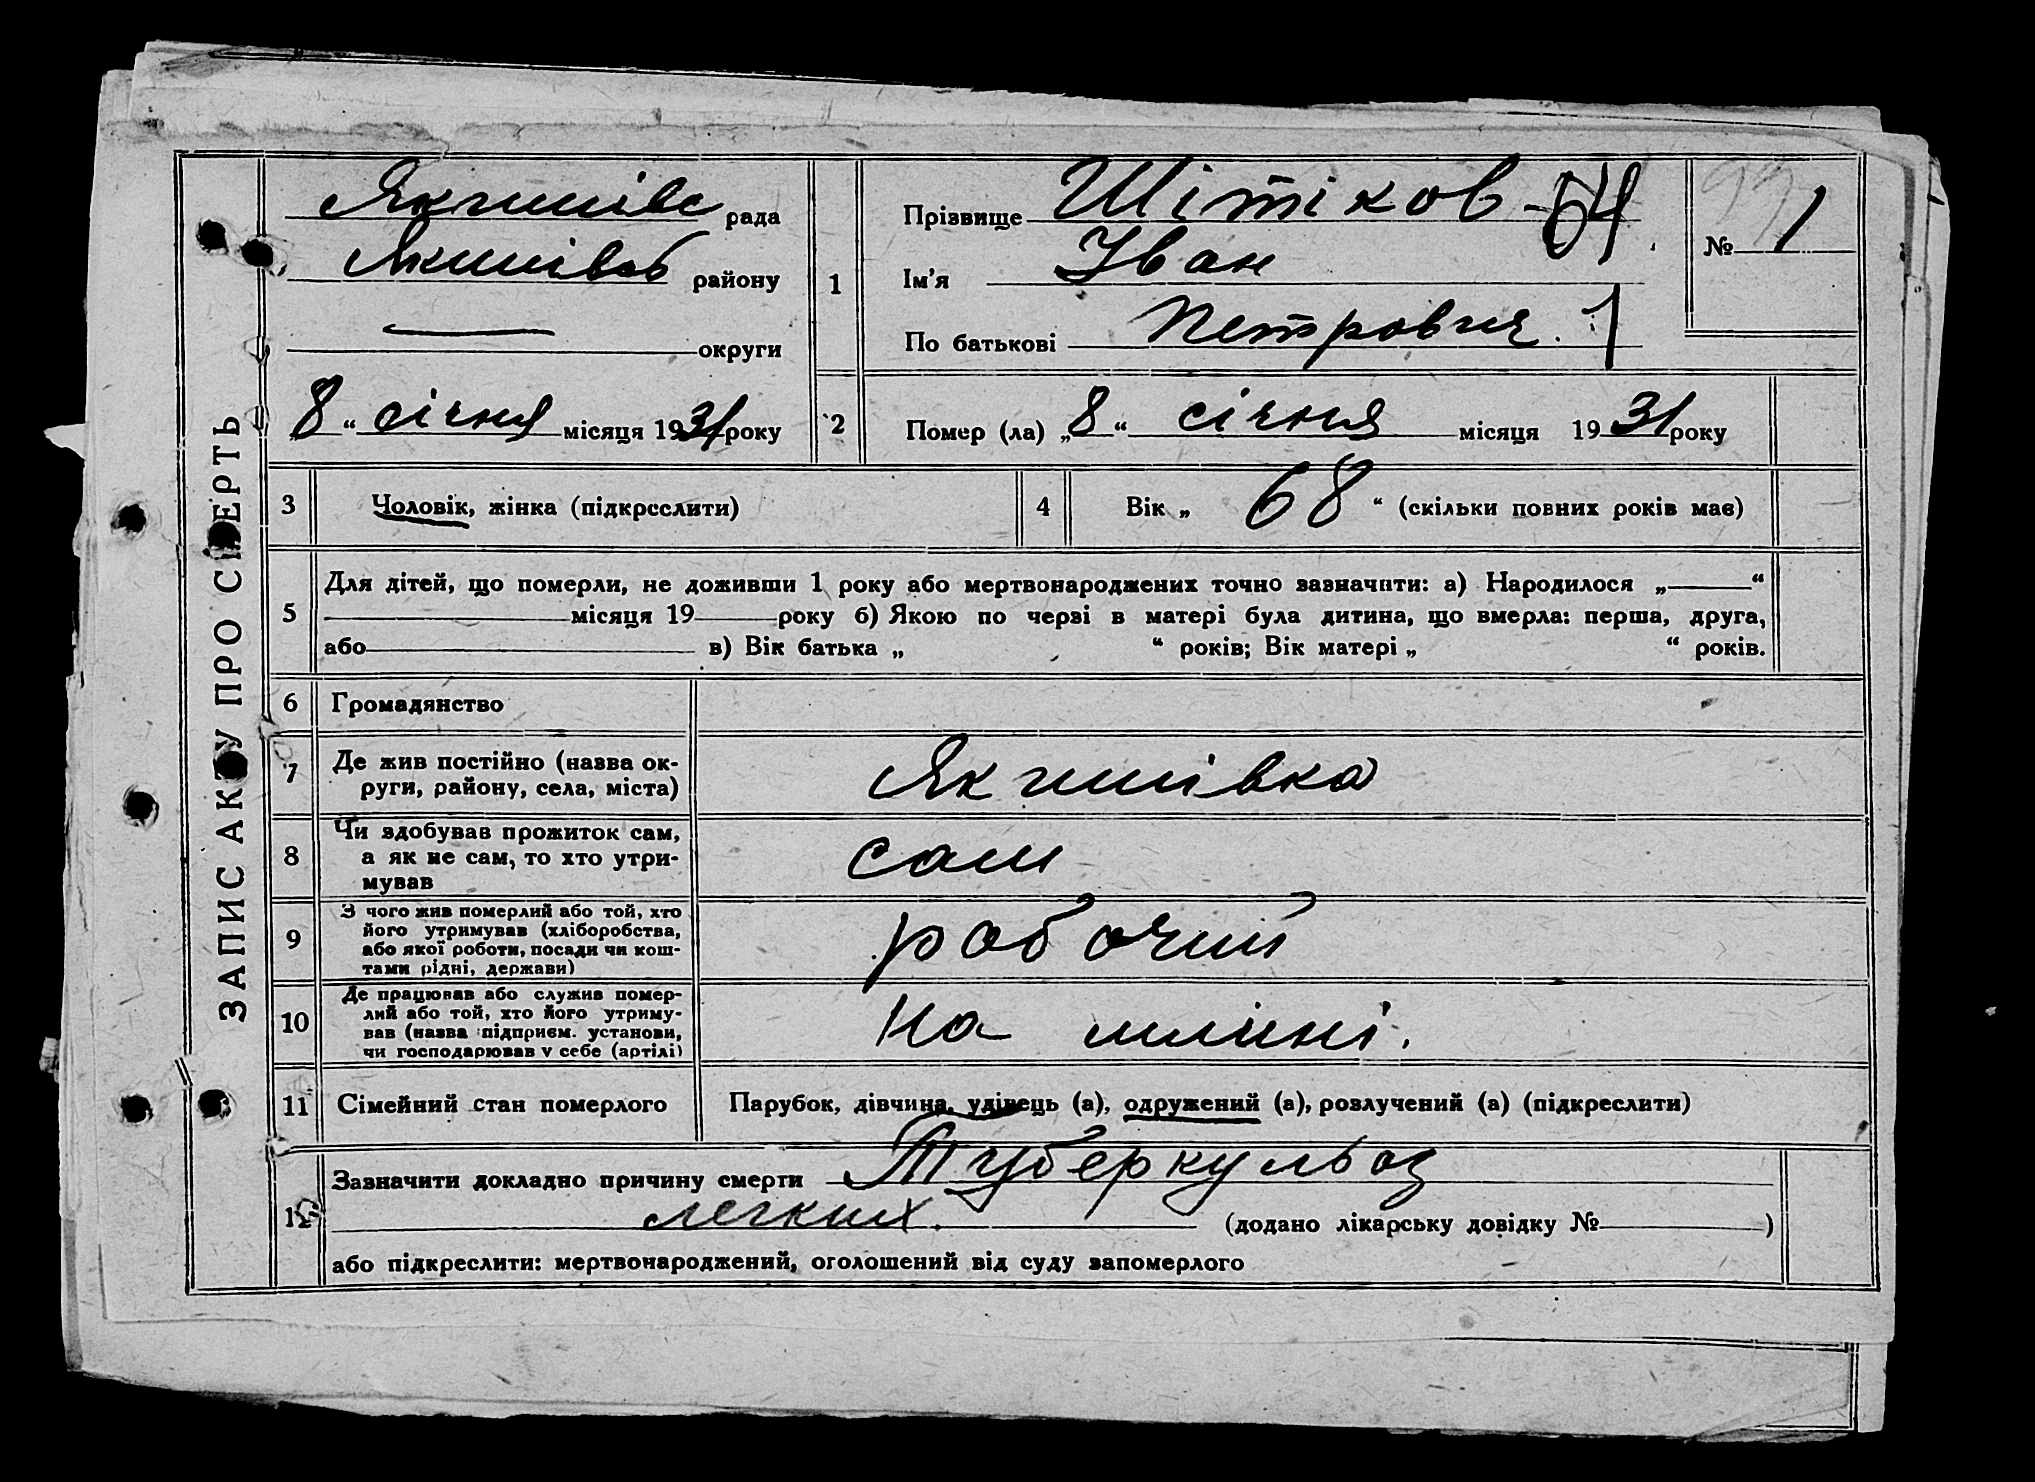 ЗАПИС АКТУ ПРО СМЕРТЬ
Якимівс рада
Якимівсь району
округи
„8“ січня місяця 1931 року
1
Прізвище Шітіков - 64
Ім'я Іван
По батькові Петрович. 1
№ 1
2
Помер (ла) „8“ січня місяця 1931 року
3 Чоловік, жінка (підкреслити)
4 Вік „68“ (скільки повних років має)
5
Для дітей, що померли, не доживши 1 року або мертвонароджених точно зазначити: а) Народилося „ “
місяця 19 року б) Якою по черзі в матері була дитина, що вмерла: перша, друга,
або в) Вік батька „ “ років; Вік матері „ “ років.
6 Громадянство
7 Де жив постійно (назва ок-
руги, району, села, міста)
Якимівка
8 Чи здобував прожиток сам,
а як не сам, то хто утри-
мував
сам
9 З чого жив померлий або той, хто
його утримував (хліборобства,
або якої роботи, посади чи кош-
тами рідні, держави)
робочий
10 Де працював або служив помер-
лий або той, хто його утриму-
вав (назва підприєм. установи,
чи господарював у себе (артілі)
На млині.
11 Сімейний стан померлого
Парубок, дівчина, удівець (а), одружений (а), розлучений (а) (підкреслити)
12 Зазначити докладно причину смерти Туберкульоз
легких. (додано лікарську довідку № )
або підкреслити: мертвонароджений, оголошений від суду запомерлого